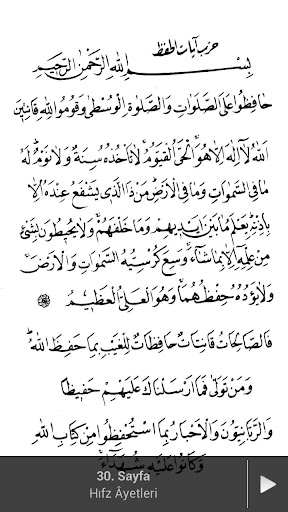 حزب آيات الحفظ
بِسْمِ اللهِ الرَّحْمٰنِ الرَّحِيمِ
حَافِظُوا عَلَى الصَّلَوَاتِ وَالصَّلٰوةِ الْوُسْطٰى وَقُومُوا لِلّٰهِ قَانِتِينَ
اَللهُ لَا اِلٰهَ اِلَّا هُوَ الْحَيُّ الْقَيُّومُ لَا تَأْخُذُهُ سِنَةٌ وَلَا نَوْمٌ لَهُ
مَا فِي السَّمٰوَاتِ وَمَا فِي الْاَرْضِ مَنْ ذَا الَّذِي يَشْفَعُ عِنْدَهُ اِلَّا
بِاِذْنِهِ يَعْلَمُ مَا بَيْنَ اَيْدِيهِمْ وَمَا خَلْفَهُمْ وَلَا يُحِيطُونَ بِشَيْءٍ
مِنْ عِلْمِهِ اِلَّا بِمَا شَاءَ وَسِعَ كُرْسِيُّهُ السَّمٰوَاتِ وَالْاَرْضَ
وَلَا يَؤُدُهُ حِفْظُهُمَا وَهُوَ الْعَلِيُّ الْعَظِيمُ
فَالصَّالِحَاتُ قَانِتَاتٌ حَافِظَاتٌ لِلْغَيْبِ بِمَا حَفِظَ اللهُ
وَمَنْ تَوَلّٰى فَمَا اَرْسَلْنَاكَ عَلَيْهِمْ حَفِيظًا
وَالرَّبَّانِيُّونَ وَالْاَحْبَارُ بِمَا اسْتُحْفِظُوا مِنْ كِتَابِ اللهِ
وَكَانُوا عَلَيْهِ شُهَدَاءَ
30. Sayfa
Hıfz Âyetleri